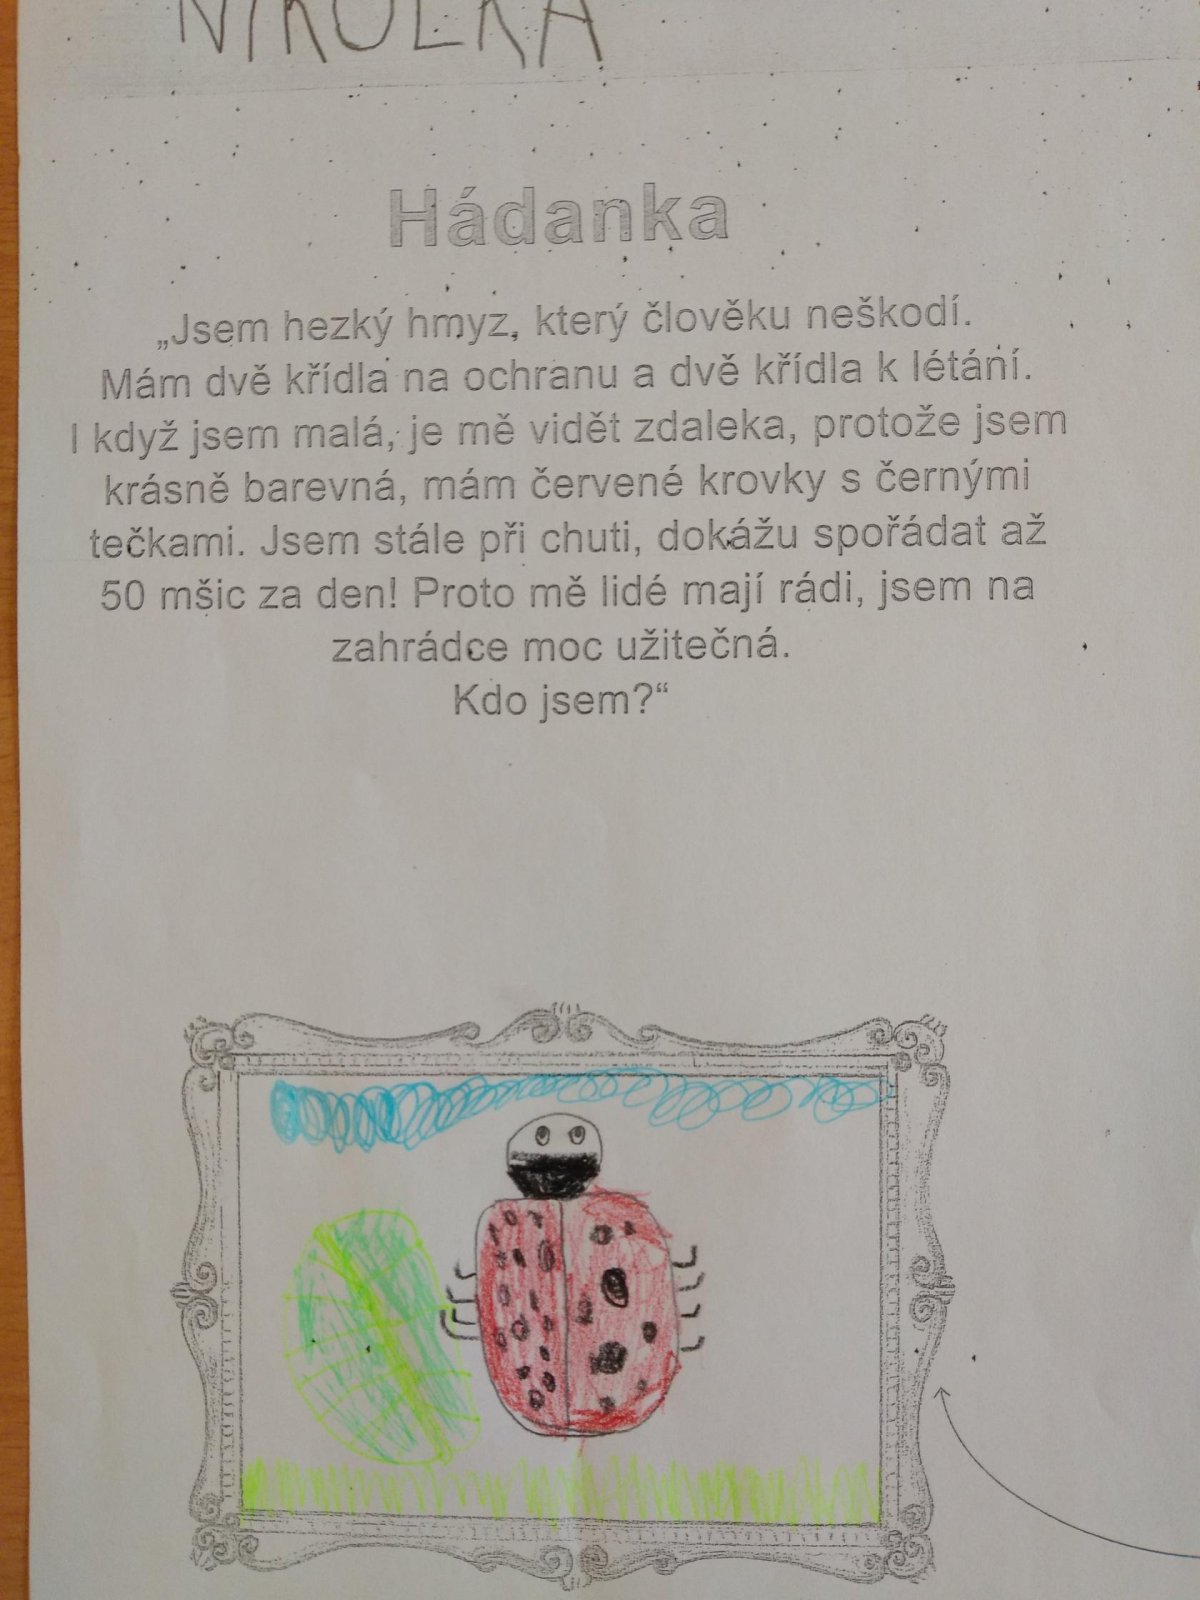 NIKOLKA
Hádanka
„Jsem hezký hmyz, který člověku neškodí.
Mám dvě křídla na ochranu a dvě křídla k létání.
I když jsem malá, je mě vidět zdaleka, protože jsem
krásně barevná, mám červené krovky s černými
tečkami. Jsem stále při chuti, dokážu spořádat až
50 mšic za den! Proto mě lidé mají rádi, jsem na
zahrádce moc užitečná.
Kdo jsem?“